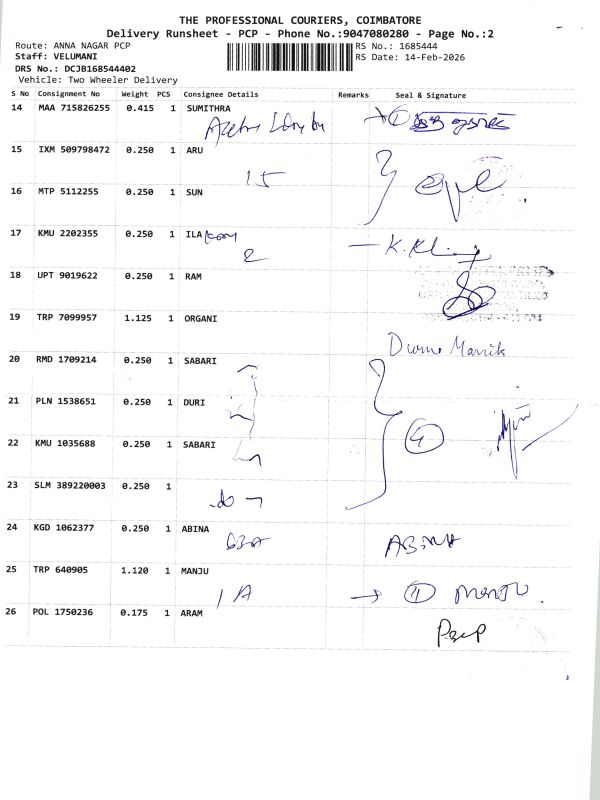 THE PROFESSIONAL COURIERS, COIMBATORE
Delivery Runsheet - PCP - Phone No.:9047080280 - Page No.:2
Route: ANNA NAGAR PCP RS No.: 1685444
Staff: VELUMANI RS Date: 14-Feb-2026
DRS No.: DCJB168544402
Vehicle: Two Wheeler Delivery
S No Consignment No Weight PCS Consignee Details Remarks Seal & Signature
14 MAA 715826255 0.415 1 SUMITHRA
15 IXM 509798472 0.250 1 ARU
15
16 MTP 5112255 0.250 1 SUN
17 KMU 2202355 0.250 1 ILA
2
18 UPT 9019622 0.250 1 RAM
19 TRP 7099957 1.125 1 ORGANI
20 RMD 1709214 0.250 1 SABARI
21 PLN 1538651 0.250 1 DURI
4
22 KMU 1035688 0.250 1 SABARI
23 SLM 389220003 0.250 1
24 KGD 1062377 0.250 1 ABINA
ABiNA
25 TRP 640905 1.120 1 MANJU
1A MANJU
26 POL 1750236 0.175 1 ARAM